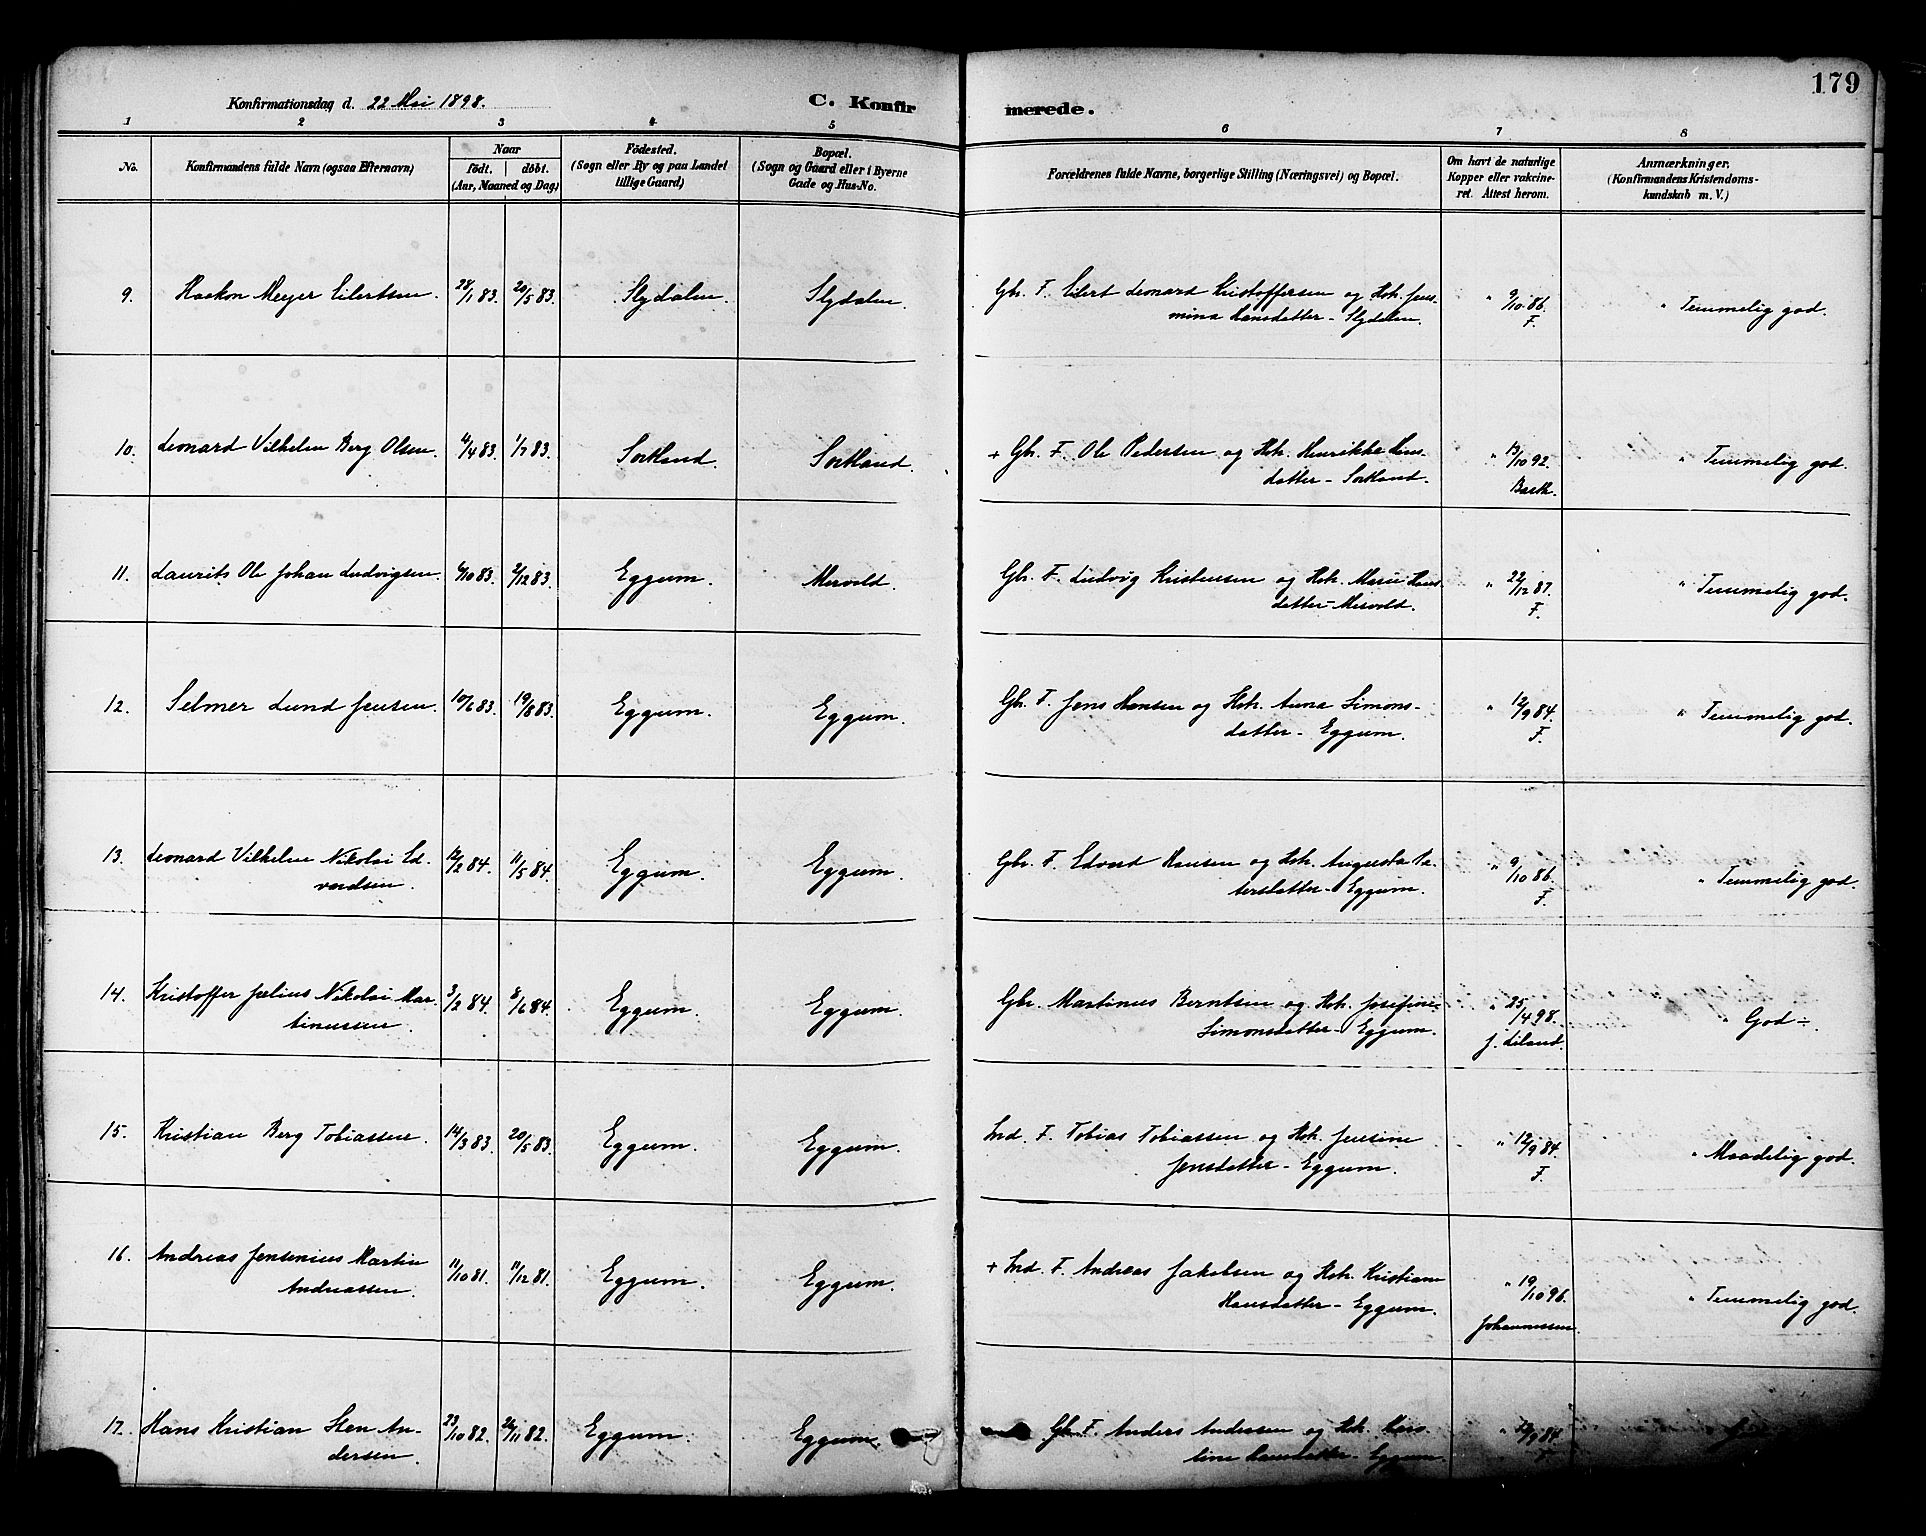 179
Konfirmationsdag d. 22 Mai 1898. C. Konfirmerede.
1 2 3 4 5 6 7 8
No. Konfirmandens fulde Navn (ogsaa Efternavn) Naar født. døbt. (Aar, Maaned og Dag) Fødested. (Sogn eller By og paa Landet tillige Gaard) Bopæl. (Sogn og Gaard eller i Byerne Gade og Hus-No. Forældrenes fulde Navne, borgerlige Stilling (Næringsvei) og Bopæl. Om havt de naturlige Kopper eller vakcineret. Attest herom. Anmærkninger. (Konfirmandens Kristendomskundskab m. V.)
9. Haakon Meyer Eilertsen. 28/1 83. 20/5 83. Slydalen. Slydalen. Gbr. F. Eilert Leonard Kristoffersen og Hstr. Jens- " 9/10 86. " Temmelig god.
mina Hansdatter - Slydalen. F.
10. Leonard Vilhelm Berg Olsen. 4/4 83. 1/7 83. Sortland. Sortland. + Gbr. F. Ole Pedersen og Hstr. Henrikke Hans- " 13/10 92. " Temmelig god.
datter - Sortland. Barth.
11. Laurits Ole Johan Ludvigsen. 4/10 83. 2/12 83. Eggum. Mervold. Gbr. F. Ludvig Kristensen og Hstr. Marie Hans- " 22/12 87. " Temmelig god.
datter - Mervold. F.
12. Selmer Lund Jensen. 10/6 83. 19/8 83. Eggum. Eggum. Gbr. F. Jens Hansen og Hstr. Anna Simons- " 12/9 84. " Temmelig god.
datter - Eggum. F.
13. Leonard Vilhelm Nikolai Ed- 12/2 84. 11/5 84. Eggum. Eggum. Gbr. F. Edvard Hansen og Hstr. Augusta Pe- " 9/10 86. " Temmelig god.
vardsen. tersdatter - Eggum. F.
14. Kristoffer Julius Nikolai Mar- 3/2 84. 8/6 84. Eggum. Eggum. Gbr. Martinus Berntsen og Hstr. Josefine " 25/4 98. " God ÷.
tinussen. Simonsdatter - Eggum. J. Liland.
15. Kristian Berg Tobiassen. 14/3 83. 20/5 83. Eggum. Eggum. Ind. F. Tobias Tobiassen og Hstr. Jensine " 12/9 84. " Maadelig god.
Jensdatter - Eggum. F.
16. Andreas Jensenius Martin 11/10 81. 11/12 81. Eggum. Eggum. + Ind. F. Andreas Jakobsen og Hstr. Kristiane " 19/10 96. " Temmelig god.
Andreassen. Hansdatter - Eggum. Johannessen.
17. Hans Kristian Sten An- 23/10 82. 26/11 82. Eggum. Eggum. Gbr. F. Anders Andersen og Hstr. Karo- " 12/9 84.
dersen. line Hansdatter - Eggum. F.